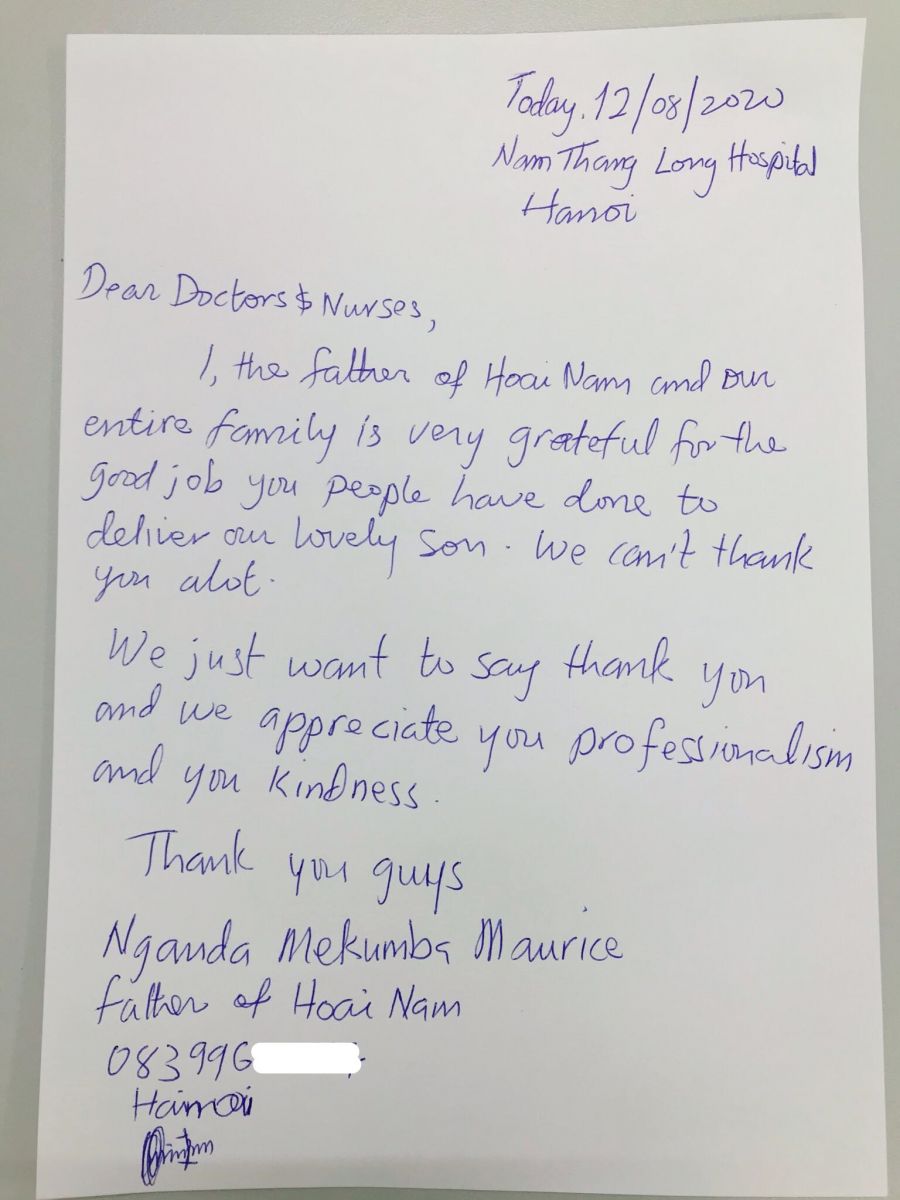 Today. 12/08/2020
Nam Thang Long Hospital
Hanoi
Dear Doctors & Nurses,
I, the father of Hoai Nam and our
entire family is very grateful for the
good job you people have done to
deliver our lovely son. We can't thank
you alot.
We just want to say thank you
and we appreciate you professionalism
and you kindness.
Thank you guys
Nganda Mekumba Maurice
father of Hoai Nam
083996
Hanoi